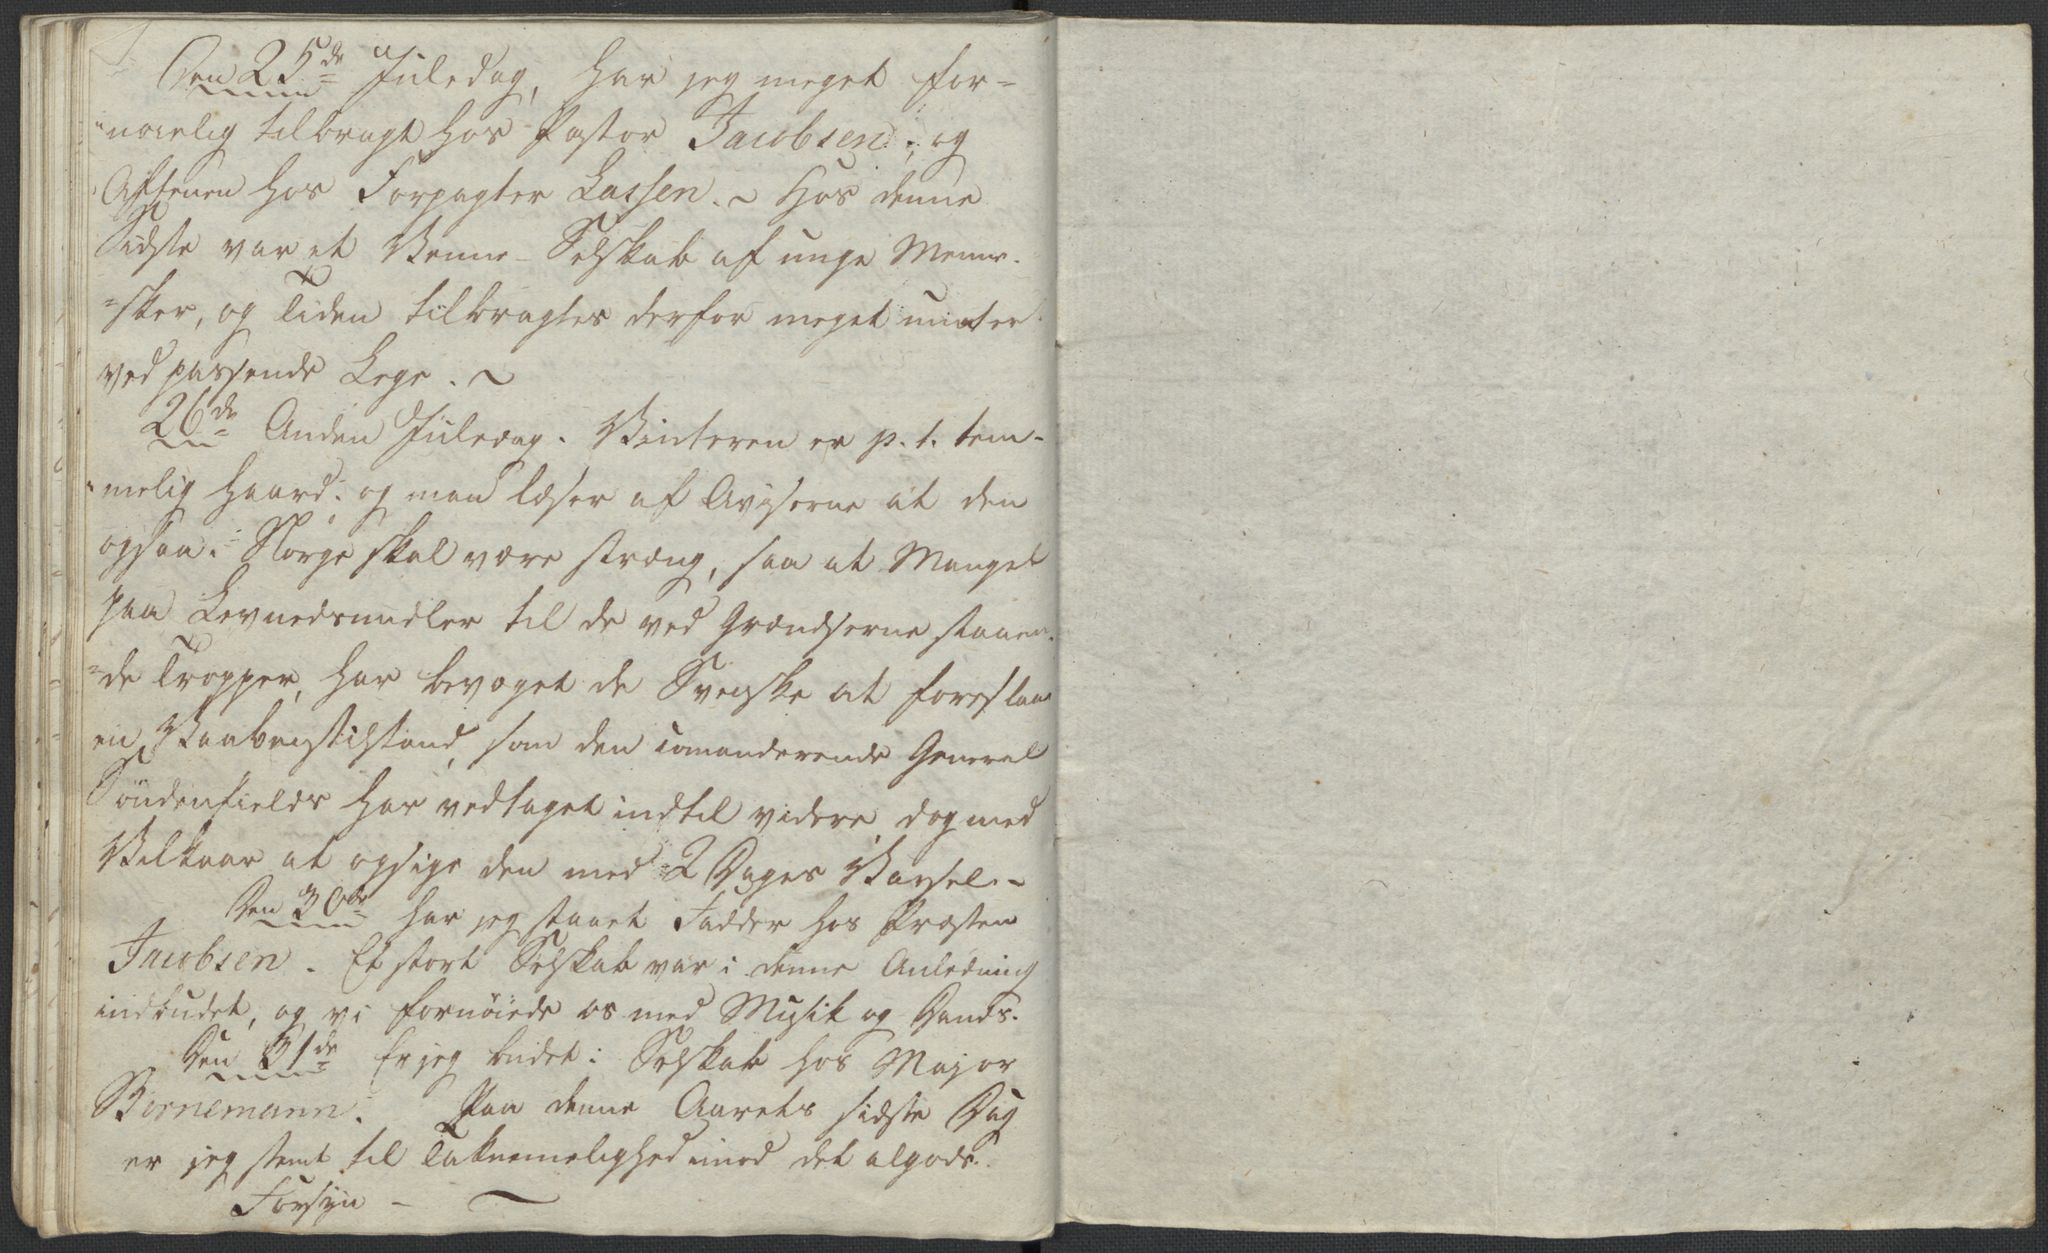 Den 25de Juledag, har jeg meget for=
=nøielig tilbragt hos Pastor Jacobsen; og
Aftenen hos Forpagter Lassen. ~ Hos denne
Sidste var et Venne-Selskab af unge Menne-
=sker, og Tiden tilbragtes derfor meget munter
ved passende Lege. ~
26de Anden Juledag. Vinteren er p. t. tem-
=melig haard; og man læser af Aviserne at den
ogsaa i Norge skal være stræng, saa at Mangel
paa Levnedsmidler til de ved Grændserne staaen-
=de Tropper, har bevæget de Svenske at foreslaae
en Vaabenstilstand, som den comanderende General
Söndenfields har vedtaget indtil videre, dog med
Vilkaar at opsige den med 2 Dages Varsel. ~
Den 30de har jeg staaet Fadder hos Præsten
Jacobsen. Et stort Selskab var i denne Anledning
indbudet, og vi fornöiede os med Musik og Dands.
Den 31de Er jeg budet i Selskab hos Major
Bornemann. Paa denne Aarets sidste Dag
er jeg stemt til Taknemelighed imod det algode
Forsyn - ~